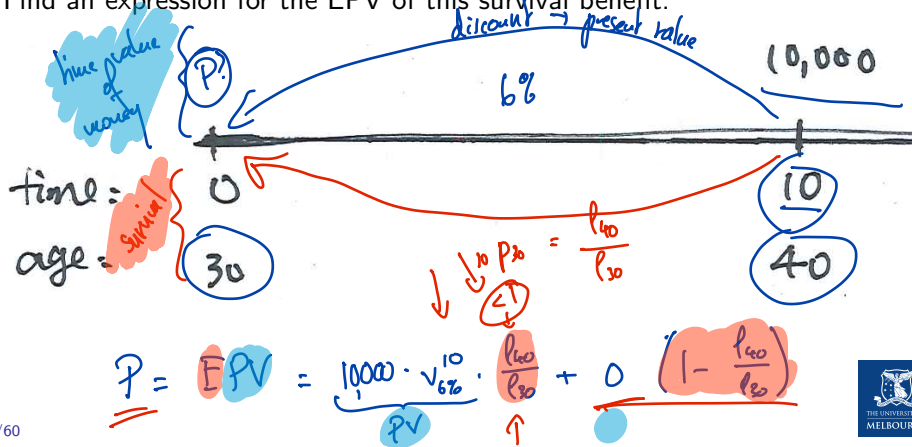 Find an expression for the EPV of this survival benefit.
discount → present value
time value of money
P?
6%
10,000
time: 0 10
survival
age: 30 40
10 p30 = l40 / l30
<1
P = EPV = 10000 · v 10 6% · l40 / l30 + 0 (1 - l40 / l30)
PV
/60
THE UNIVERSI
MELBOUR